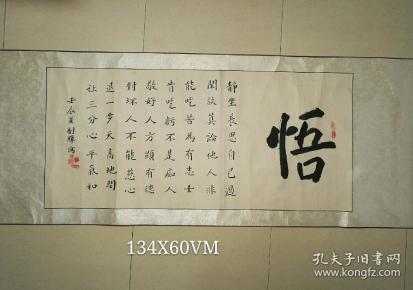 悟
静坐長思自己過
閑談莫論他人非
能吃苦為有志士
肯吃虧不是痴人
敬好人方顯有德
對坏人不能慈心
退一步天高地闊
讓三分心平氣和
壬辰夏
134X60VM
孔夫子旧书网
www.kongfz.com